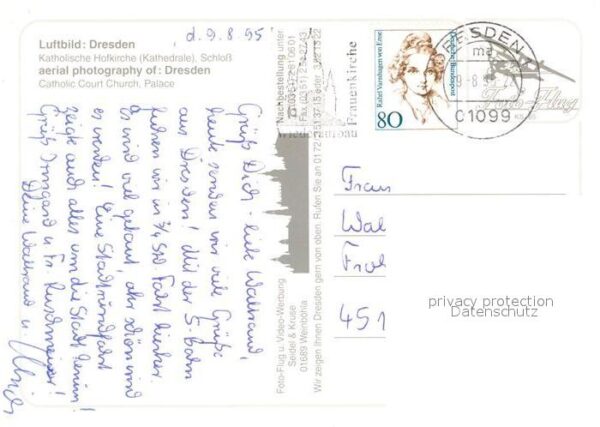 Luftbild: Dresden
Katholische Hofkirche (Kathedrale), Schloß
aerial photography of: Dresden
Catholic Court Church, Palace
d. 9.8.95
Grüß Dich - liebe Waltraud,
heute senden wir viele Grüße
aus Dresden! Mit der S-Bahn
fuhren wir in ¾ Std. Fahrt hierher.
Es wird viel gebaut, aber schön wird
es werden! Eine Stadtrundfahrt
zeigte auch alles um die Stadt herum!
Grüß Irmgard u. Fr.
Deine Waltraud u. Ulrich
Foto-Flug u. Video-Werbung
Seidel & Kruse
01689 Weinböhla
Nachbestellung unter
Wir zeigen Ihnen Dresden gern von oben. Rufen Sie an
Wiederaufbau Frauenkirche
Rahel Varnhagen von Ense
Deutsche Bundespost
80
DRESDEN
ma
01099
Foto-Flug
Frau
Wal
Fro
451
privacy protection
Datenschutz